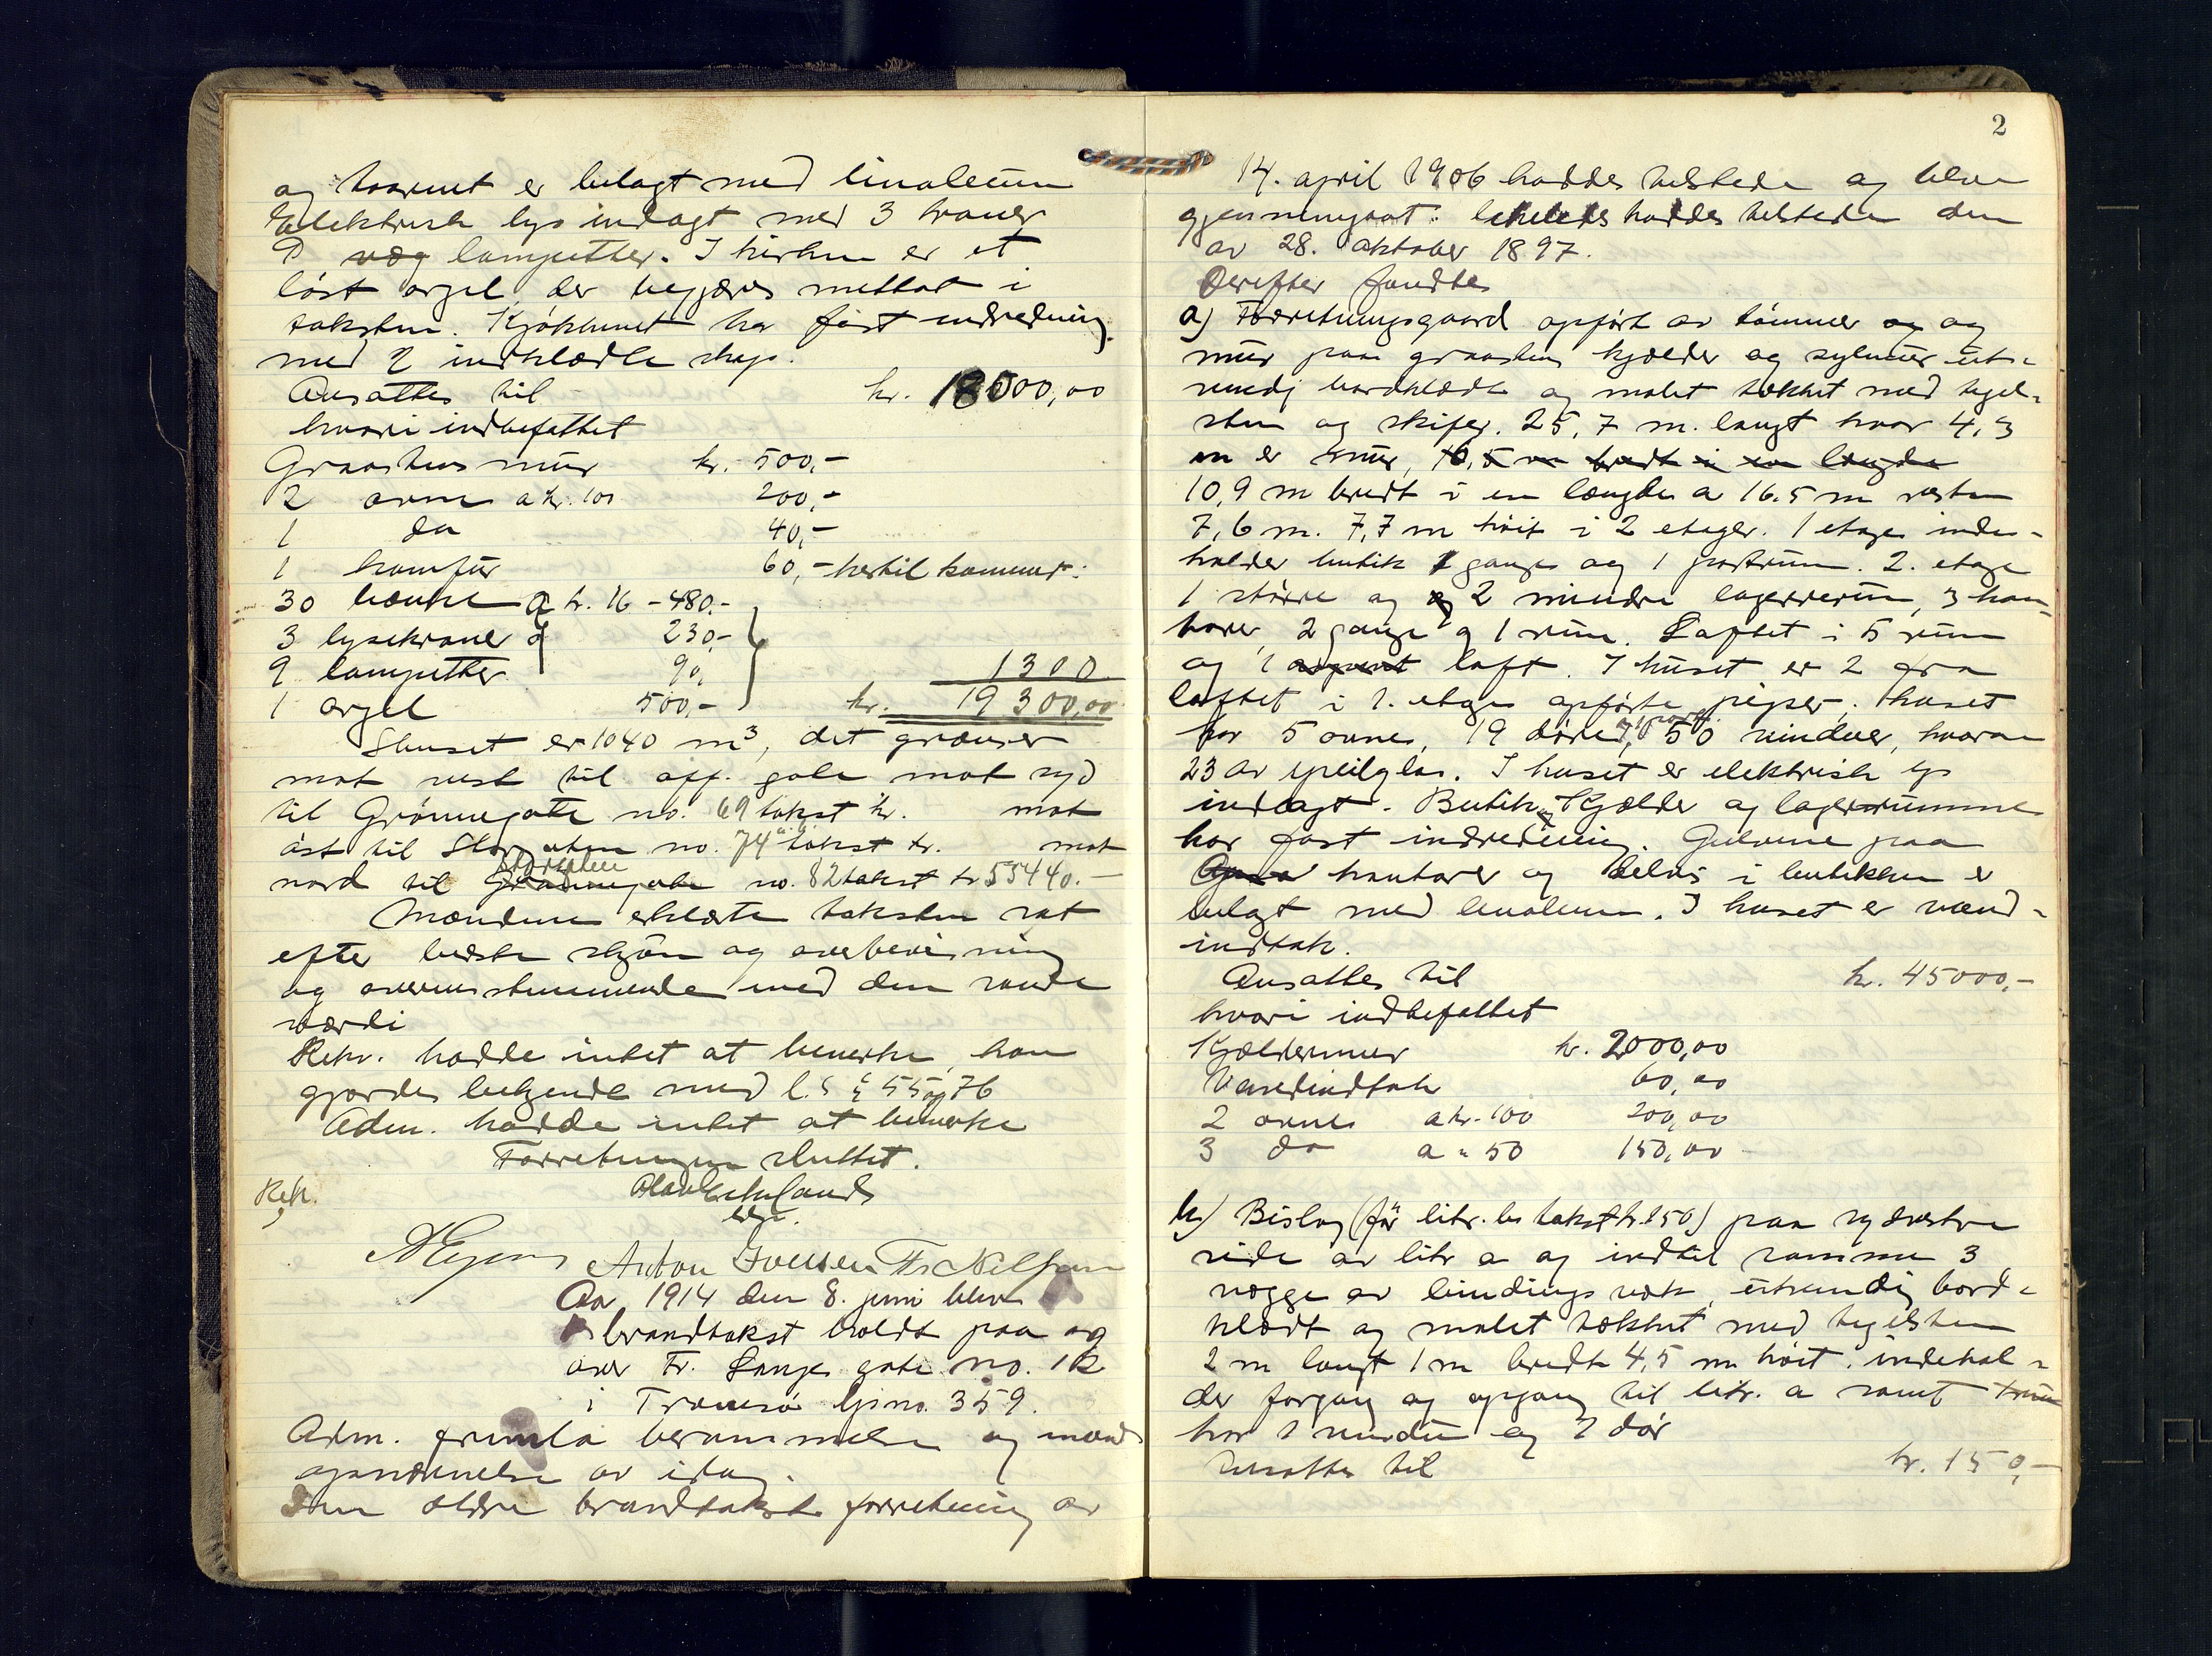 og taarnet er belagt med linoleum
Elektrisk lys indlagt med 3 kroner
9 væg lampetter. I kirken er et
løst orgel, der begjæres mettat i
taksten. Kjøkkenet har fast indredning
med 2 indklædte skap.
Ansattes til kr. 18000,00
hvori indbefattet
Graastens mur kr. 500,-
2 ovne a kr. 100 200,-
1 do 40,-
1 komfur 60,- hertil kommer:
30 bænke a kr. 16 - 480,-
3 lysekroner 230,-
9 lampetter 90,
1300
1 orgel 500,- kr. 19300,00
Huset er 1040 m3, det grænser
mot vest til off. gate mot syd
til Grønnegate no. 69 takst kr. mot
øst til Storgaten no. 74 a takst kr. mot
Storgaten
nord til Grønnegate no. 82 takst kr 55440.-
Mændene erklærte taksten sat
efter bedste skjøn og overbevisning
og overensstemmende med den sande
værdi
Rekv. hadde intet at bemerke, han
gjordes bekjendt med l. §§ 55 og 76
Adm. hadde intet at bemerke
Forretningen sluttet.
Rekv.
Anton Iversen Fr Nilsen
Aar 1914 den 8. juni blev
brandtakst holdt paa og
over Fr. Langes gate no. 12
i Tromsø bjs no. 359.
Adm. fremla berammelse og mænds
opnævnelse av idag.
Den ældre brandtakst forretning av
2
14. april 1906 haddes tilstede og blev
gjennemgaat: likeledes haddes tilstede den
av 28. oktober 1897.
Derefter fandtes
a) Forretningsgaard opført av tømmer og og
mur paa graastens kjælder og sylmur ut-
vendig bordklædt og malet tækket med tegl-
sten og skifer. 25,7 m. langt hvor 4,3
m er mur, 10,5 m bredt i en længde
10,9 m bredt i en længde a 16.5 m resten
7,6 m. 7,7 m høit i 2 etager. 1 etage inde-
holder butik 1 gange og 1 postrum. 2. etage
1 større og og 2 mindre lagerrum, 3 kon-
torer, 2 gange og 1 rum. Loftet i 5 rum
og 1 loft. I huset er 2 fra
loftet i 1. etage opførte piper. huset
har 5 ovne, 19 døre, 50 vinduer, hvorav
23 av speilglas. I huset er elektrisk lys
indlagt. Butik og Kjælder og lagerrummene
har fast indredning. Gulvene paa
kontorer og delvis i butikken er
belagt med linoleum. I huset er vand-
indtak.
Ansattes til kr. 45000,-
hvori indbefattet
Kjældermur kr. 2000,00
Vandindtak 60,00
2 ovne a kr. 100 200,00
3 do a " 50 150,00
b) Bislag (før litr. b takst kr. 150) paa sydvestre
side av litr a og indtil samme 3
vægge av bindingsverk, utvendig bord-
klædt og malet tækket med teglsten
2 m langt 1 m bredt 4,5 m høit. indehol-
der forgang og opgang til litr. a samt
har 1 vindu og 1 dør
Ansattes til kr. 150,-